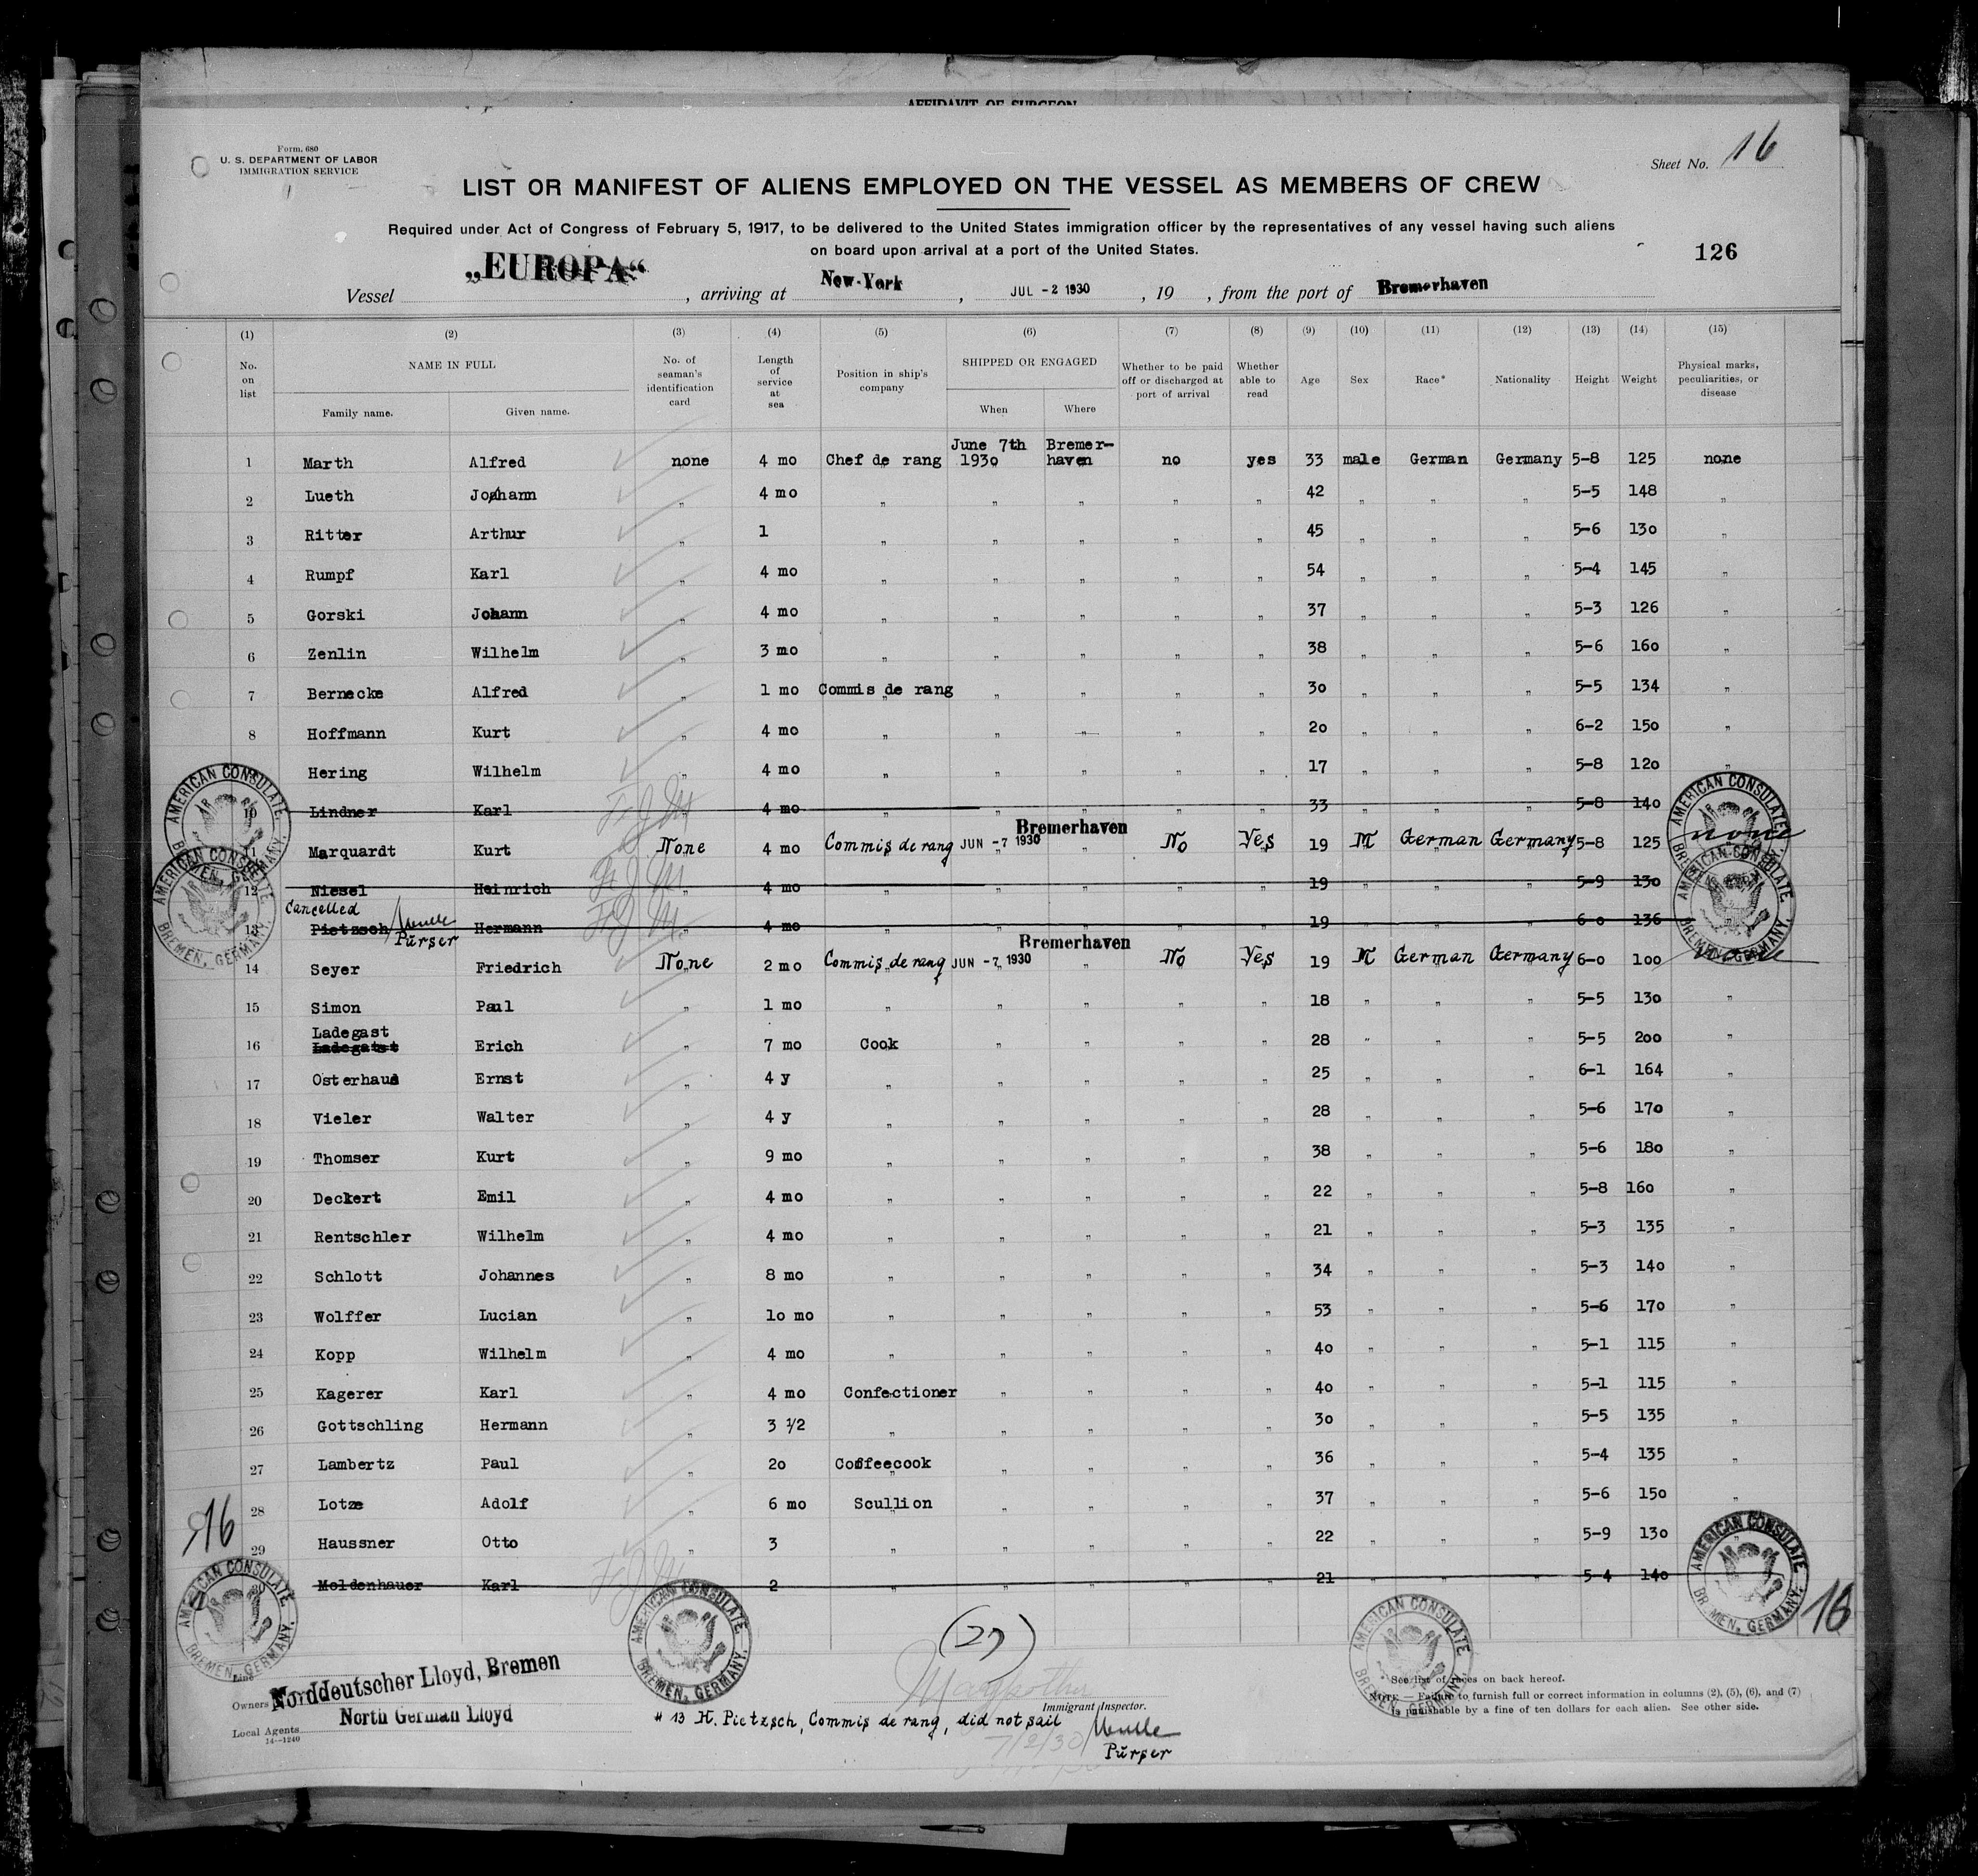 AFFIDAVIT OF SURGEON
Form. 680
U. S. DEPARTMENT OF LABOR
IMMIGRATION SERVICE
Sheet No. 16
LIST OR MANIFEST OF ALIENS EMPLOYED ON THE VESSEL AS MEMBERS OF CREW
Required under Act of Congress of February 5, 1917, to be delivered to the United States immigration officer by the representatives of any vessel having such aliens
on board upon arrival at a port of the United States.
126
Vessel „EUROPA“, arriving at New-York, JUL -2 1930, 19 , from the port of Bremerhaven
(1) (2) (3) (4) (5) (6) (7) (8) (9) (10) (11) (12) (13) (14) (15)
No. on list NAME IN FULL Family name. Given name. No. of seaman's identification card Length of service at sea Position in ship's company SHIPPED OR ENGAGED When Where Whether to be paid off or discharged at port of arrival Whether able to read Age Sex Race* Nationality Height Weight Physical marks, peculiarities, or disease
1 Marth Alfred none 4 mo Chef de rang June 7th 1930 Bremer-haven no yes 33 male German Germany 5-8 125 none
2 Lueth Johann „ 4 mo „ „ „ „ „ 42 „ „ „ 5-5 148 „
3 Ritter Arthur „ 1 „ „ „ „ „ 45 „ „ „ 5-6 130 „
4 Rumpf Karl „ 4 mo „ „ „ „ „ 54 „ „ „ 5-4 145 „
5 Gorski Johann „ 4 mo „ „ „ „ „ 37 „ „ „ 5-3 126 „
6 Zenlin Wilhelm „ 3 mo „ „ „ „ „ 38 „ „ „ 5-6 160 „
7 Bernecke Alfred „ 1 mo Commis de rang „ „ „ „ 30 „ „ „ 5-5 134 „
8 Hoffmann Kurt „ 4 mo „ „ „ „ „ 20 „ „ „ 6-2 150 „
Hering Wilhelm „ 4 mo „ „ „ „ „ 17 „ „ „ 5-8 120 „
10 Lindner Karl „ 4 mo „ „ „ „ „ 33 „ „ „ 5-8 140
11 Marquardt Kurt None 4 mo Commis de rang JUN -7 1930 Bremerhaven No Yes 19 M German Germany 5-8 125 none
12 Niesel Heinrich „ 4 mo „ „ „ „ „ 19 „ „ „ 5-9 130
Cancelled
13 Pietzsch Hermann 4 mo „ „ „ „ „ 19 „ „ „ 6-0 136
Purser
14 Seyer Friedrich None 2 mo Commis de rang JUN -7 1930 Bremerhaven No Yes 19 M German Germany 6-0 100 none
15 Simon Paul „ 1 mo „ „ „ „ „ 18 „ „ „ 5-5 130 „
Ladegast
16 Ladegatst Erich „ 7 mo Cook „ „ „ „ 28 „ „ „ 5-5 200 „
17 Osterhaus Ernst „ 4 y „ „ „ „ „ 25 „ „ „ 6-1 164 „
18 Vieler Walter „ 4 y „ „ „ „ „ 28 „ „ „ 5-6 170 „
19 Thomser Kurt „ 9 mo „ „ „ „ „ 38 „ „ „ 5-6 180 „
20 Deckert Emil „ 4 mo „ „ „ „ „ 22 „ „ „ 5-8 160 „
21 Rentschler Wilhelm „ 4 mo „ „ „ „ „ 21 „ „ „ 5-3 135 „
22 Schlott Johannes „ 8 mo „ „ „ „ „ 34 „ „ „ 5-3 140 „
23 Wolffer Lucian „ 10 mo „ „ „ „ „ 53 „ „ „ 5-6 170 „
24 Kopp Wilhelm „ 4 mo „ „ „ „ „ 40 „ „ „ 5-1 115 „
25 Kagerer Karl „ 4 mo Confectioner „ „ „ „ 40 „ „ „ 5-1 115 „
26 Gottschling Hermann „ 3 1/2 „ „ „ „ „ 30 „ „ „ 5-5 135 „
27 Lambertz Paul „ 20 Coffeecook „ „ „ „ 36 „ „ „ 5-4 135 „
28 Lotze Adolf „ 6 mo Scullion „ „ „ „ 37 „ „ „ 5-6 150 „
29 Haussner Otto „ 3 „ „ „ „ „ 22 „ „ „ 5-9 130 „
Moldenhauer Karl 2 „ „ „ „ „ 21 „ „ „ 5-4 140
16
16
AMERICAN CONSULATE. BREMEN, GERMANY.
AMERICAN CONSULATE. BREMEN, GERMANY.
AMERICAN CONSULATE. BREMEN, GERMANY.
AMERICAN CONSULATE. BREMEN, GERMANY.
AMERICAN CONSULATE. BREMEN, GERMANY.
AMERICAN CONSULATE. BREMEN, GERMANY.
AMERICAN CONSULATE. BREMEN, GERMANY.
AMERICAN CONSULATE. BREMEN, GERMANY.
(27)
Line
Owners Norddeutscher Lloyd, Bremen
Local Agents North German Lloyd
14—1240
Immigrant Inspector.
# 13 H. Pietzsch, Commis de rang, did not sail
7/2/30
Purser
* See list of races on back hereof.
NOTE.—Failure to furnish full or correct information in columns (2), (5), (6), and (7)
is punishable by a fine of ten dollars for each alien. See other side.